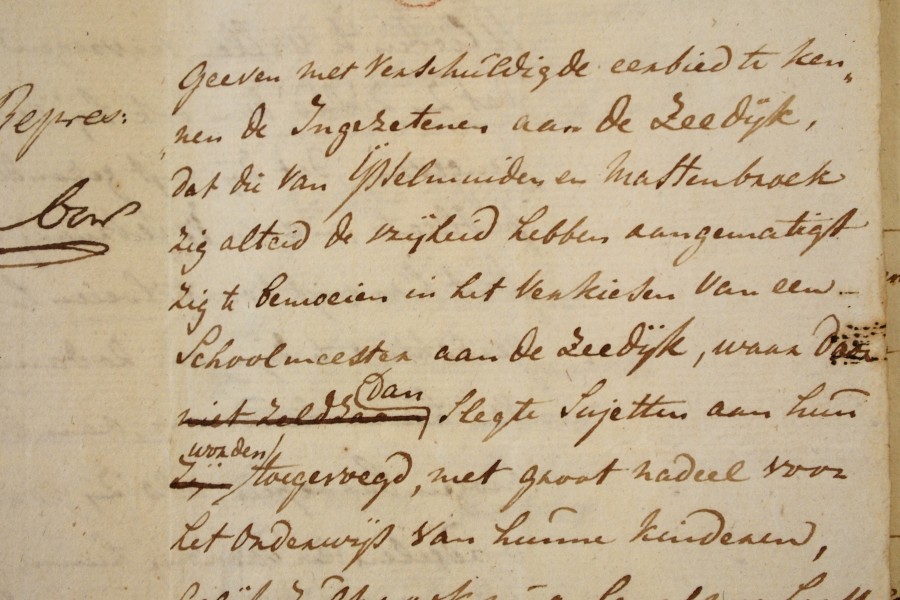 Repres:
Geeven met verschuldigde eerbied te ken„
„nen de Ingezetenen aan de Zeedÿk,
dat die van Ÿsselmuiden en Mastenbroek
zig alteid de vrijheid hebben aangematigt
zig te bemoeien in het verkiesen van een
Schoolmeester aan de Zeedÿk, waar door
niet zeldzaam dan slegte sujetten aan hun
zÿ worden toegevoegd, met groot nadeel voor
het onderwÿs van hunne kinderen,